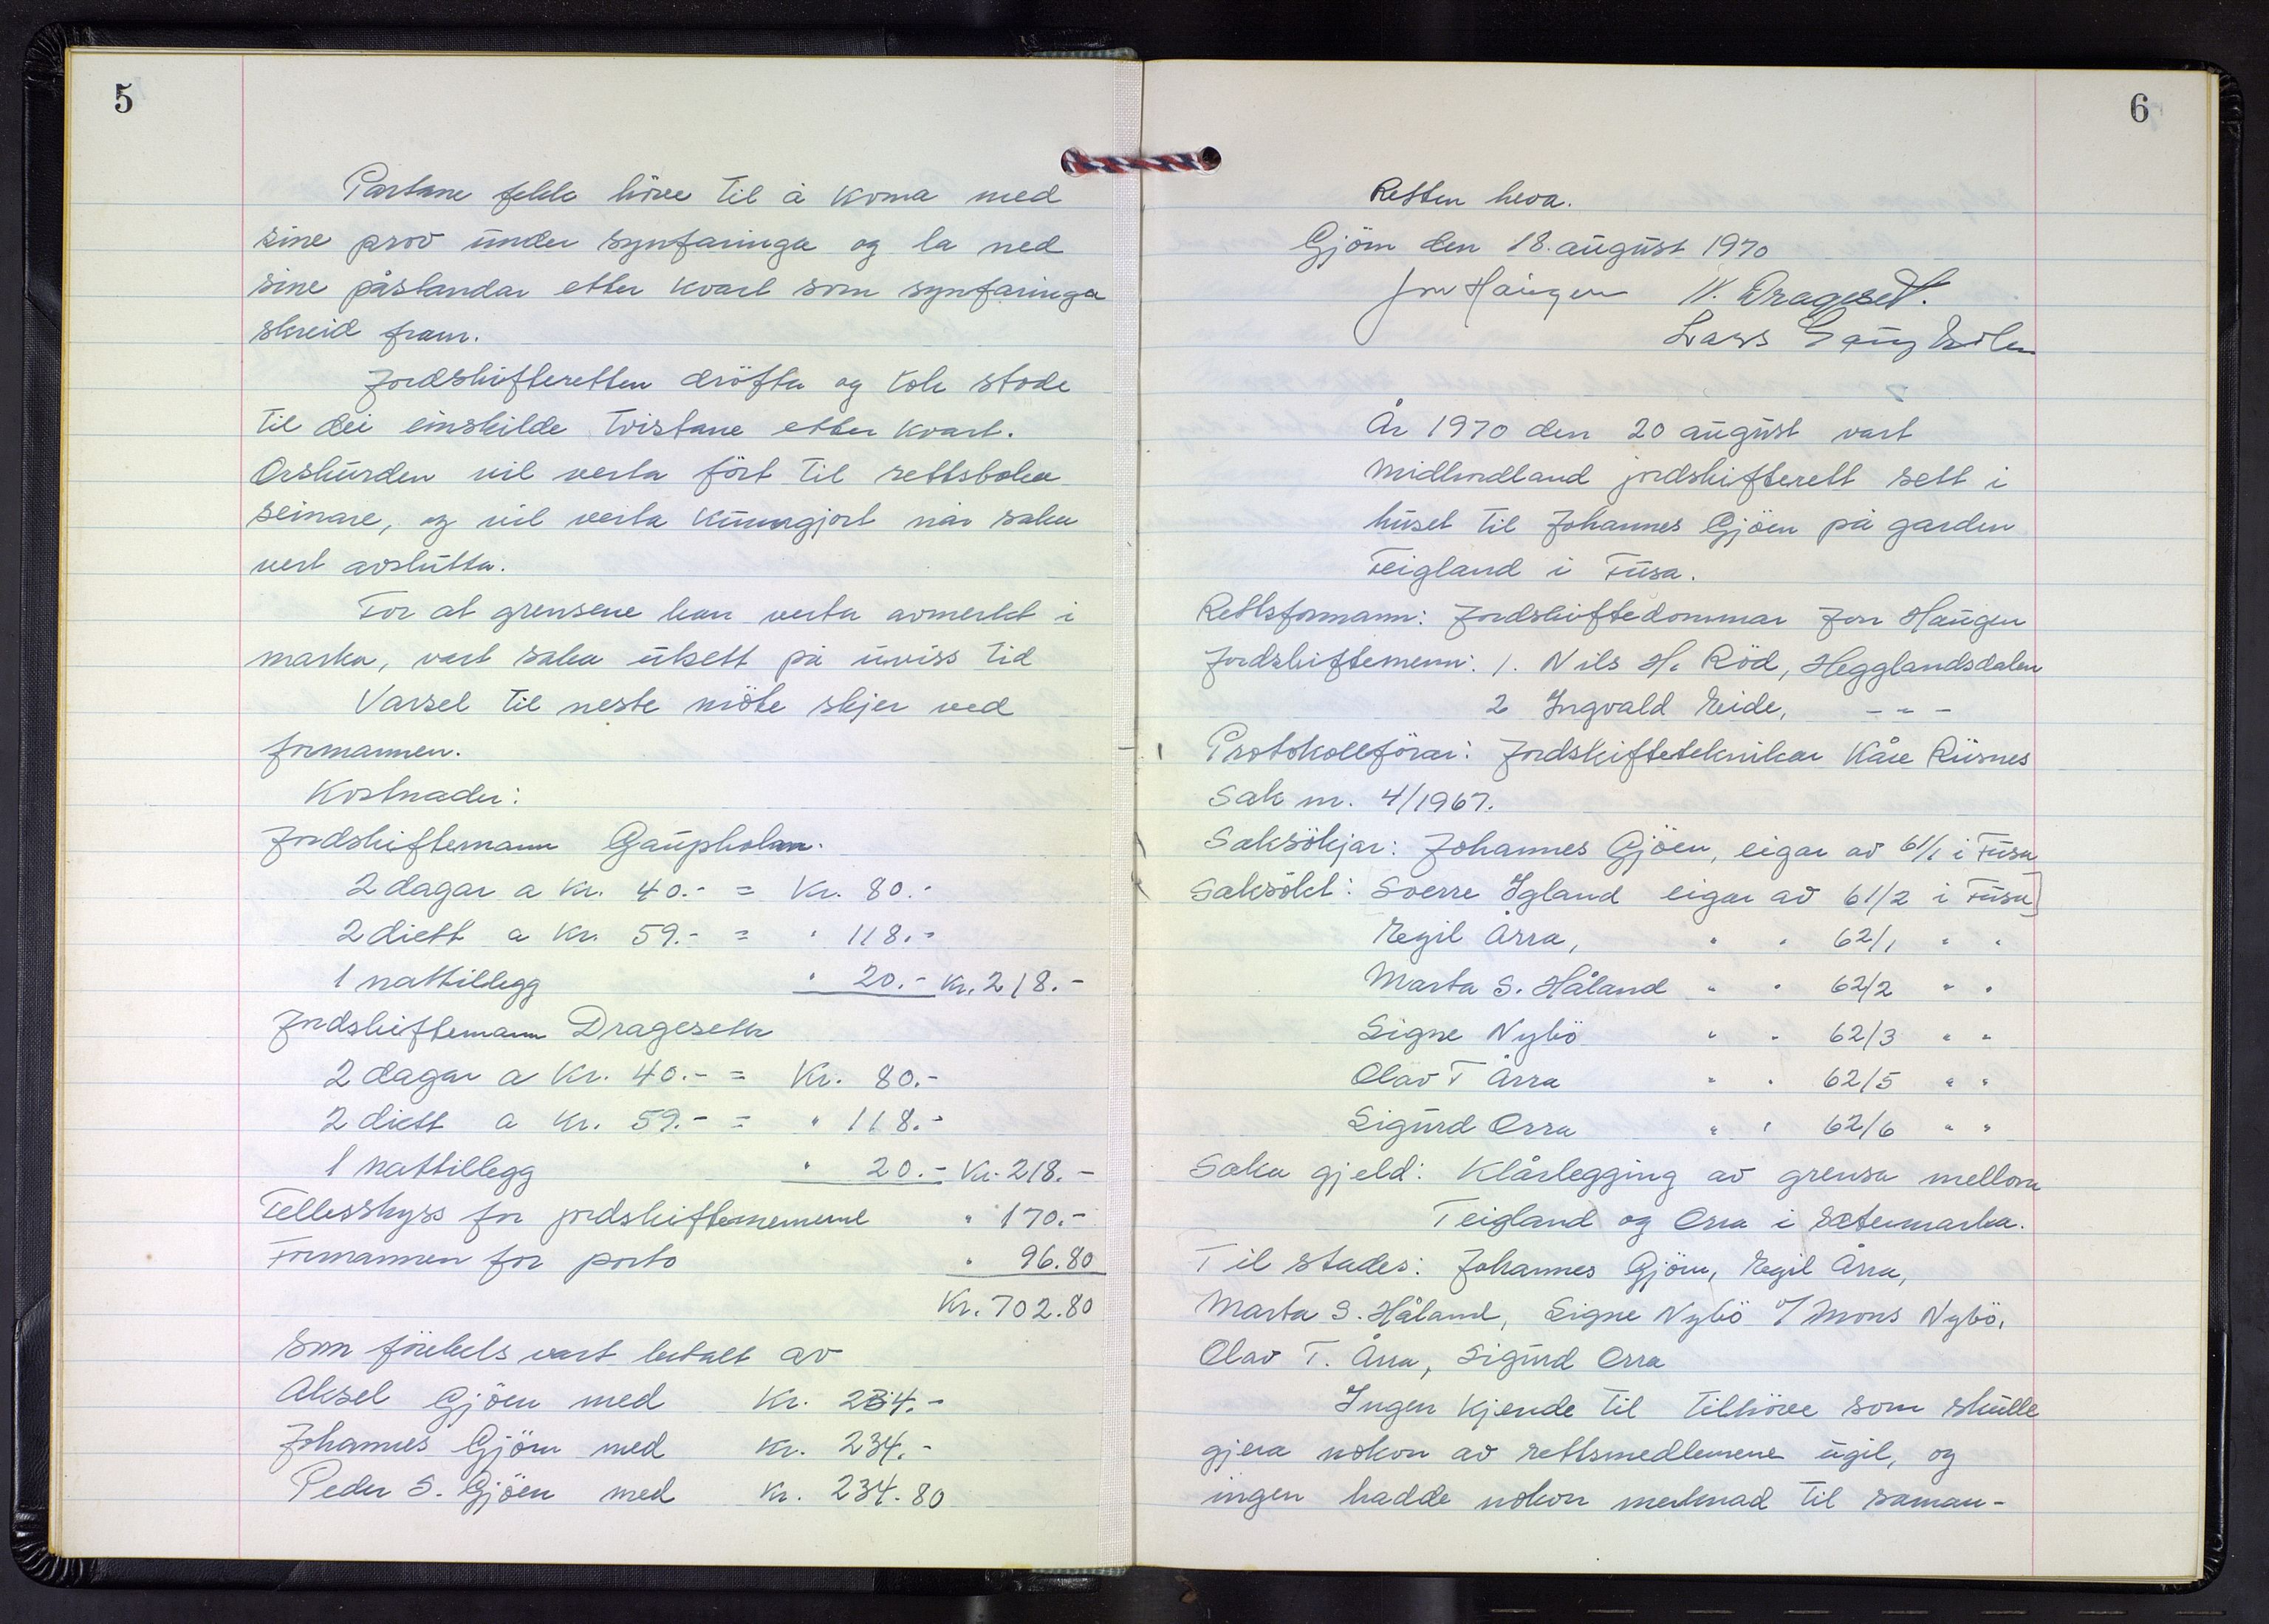 5
Partane fekk höve til å koma med
sine prov under synfaringa og la ned
sine påstandar etter kvart som synfaringa
skreid fram.
Jordskifteretten dröfta og tok stode
til dei einskilde tvistane etter kvart.
Orskurden vil verta fört til rettsboka
seinare, og vil verta kunngjort når saka
vert avslutta.
For at grensene kan verta avmerkt i
marka, vart saka utsett på uviss tid
Varsel til neste möte skjer ved
formannen.
Kostnader:
Jordskiftemann Gaupholm.
2 dagar a kr. 40.- = Kr. 80.-
2 diett a kr. 59.- = " 118.-
1 nattillegg " 20.- Kr. 218.-
Jordskiftemann Drageseth
2 dagar a Kr. 40.- = Kr. 80.-
2 diett a kr. 59.- = " 118.-
1 nattillegg " 20.- Kr. 218.-
Fellesskyss for jordskiftemennene " 170.-
Formannen for porto " 96.80
Kr. 702.80
som förebels vart betalt av
Aksel Gjöen med Kr. 234.-
Johannes Gjöen med kr. 234.-
Peder S. Gjöen med kr. 234.80
6
Retten heva.
Gjöen den 18. august 1970
Jon Haugen N. Drageset.
Lars Gaupholm
År 1970 den 20 august vart
Midhordland jordskifterett sett i
huset til Johannes Gjöen på garden
Teigland i Fusa.
Rettsformann: Jordskiftedommar Jon Haugen
Jordskiftemenn: 1. Nils H. Röd, Hegglandsdalen
2 Ingvald Eide, - " -
Protokollförar: Jordskifteteknikar Kåre Riisnes
Sak nr. 4/1967.
Saksökjar: Johannes Gjöen, eigar av 61/1 i Fusa
Saksökt: Sverre Igland eigar av 61/2 i Fusa]
Egil Årra, " " 62/1 " "
Marta S. Håland " " 62/2 " "
Signe Nybö " " 62/3 " "
Olav T Årra " " 62/5 " "
Sigurd Orra " " 62/6 " "
Saka gjeld: Klårlegging av grensa mellom
Teigland og Orra i Setermarka.
Til stades: Johannes Gjöen, Egil Årra,
Marta S. Håland, Signe Nybö v/ Mons Nybö,
Olav T. Årra, Sigurd Orra
Ingen kjende til tilhöve som skulle
gjera nokon av rettsmedlemene ugil, og
ingen hadde nokon merknad til saman-